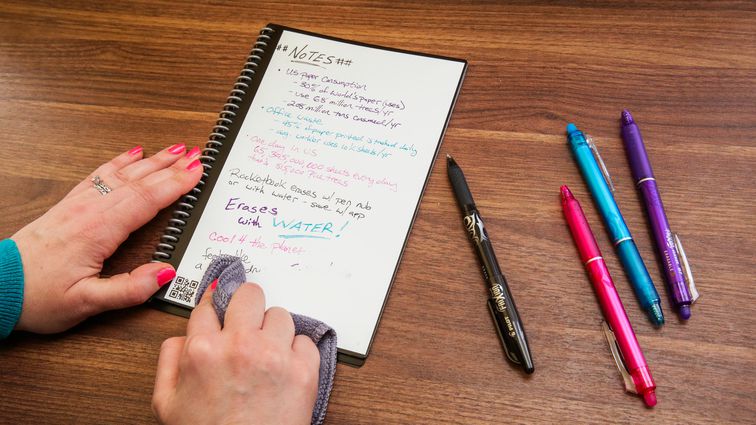 ##NOTES##
• US Paper Consumption
- 30% of World's paper (uses)
- use 68 million trees/yr
- 208 million tons consumed/yr
• Office Waste
- 45% of paper printed is trashed daily
- avg. worker uses 10k sheets/yr
• One day in US
65,
sheets every day
trees
Rocketbook erases w/ pen nub
or with water - save w/ app
ERASES
with WATER!
Cool 4 the planet
a
FRIXION
PILOT